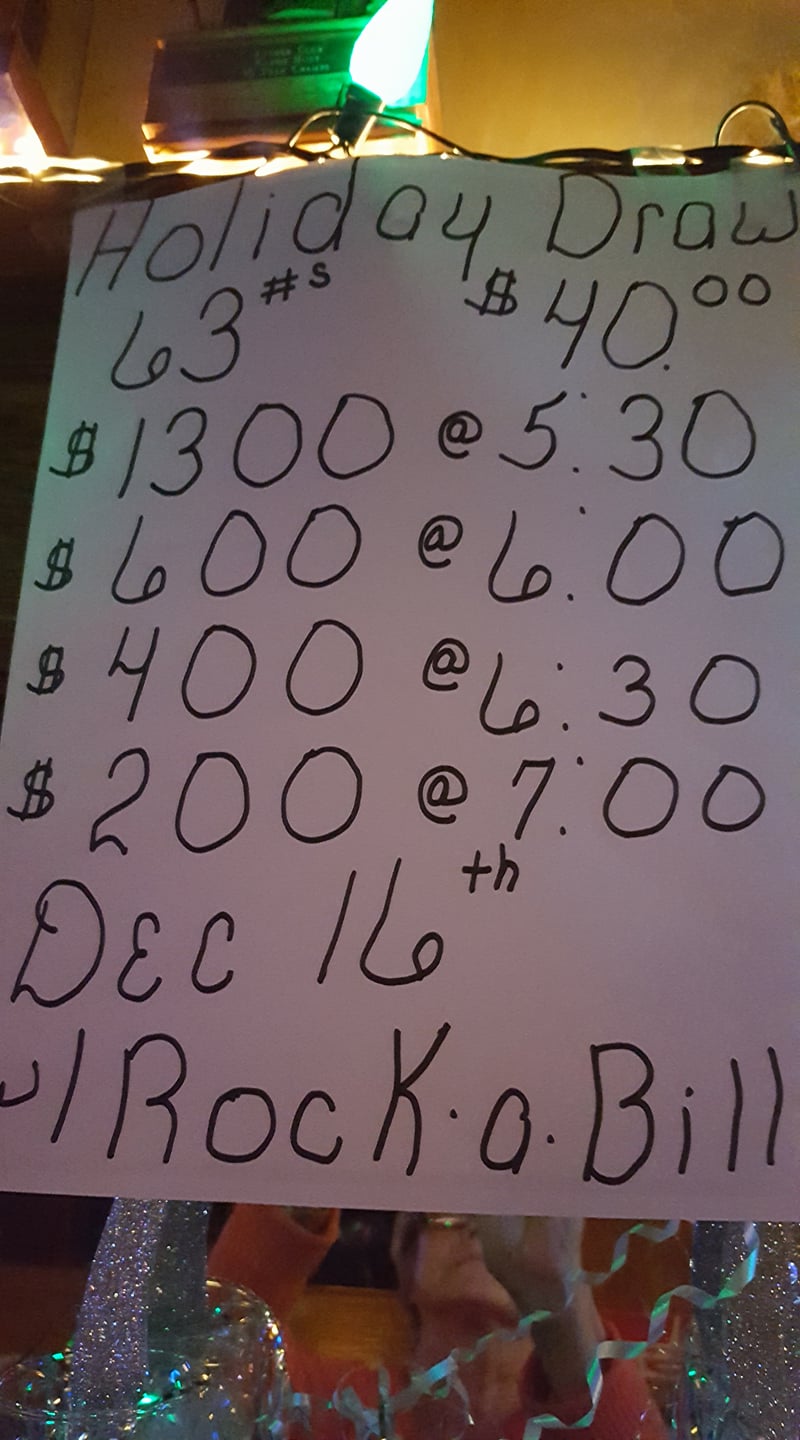 Holiday Draw
63 #s $40.00
$1300 @ 5:30
$600 @ 6:00
$400 @ 6:30
$200 @ 7:00
Dec 16th
w/ Rock.a.Bill